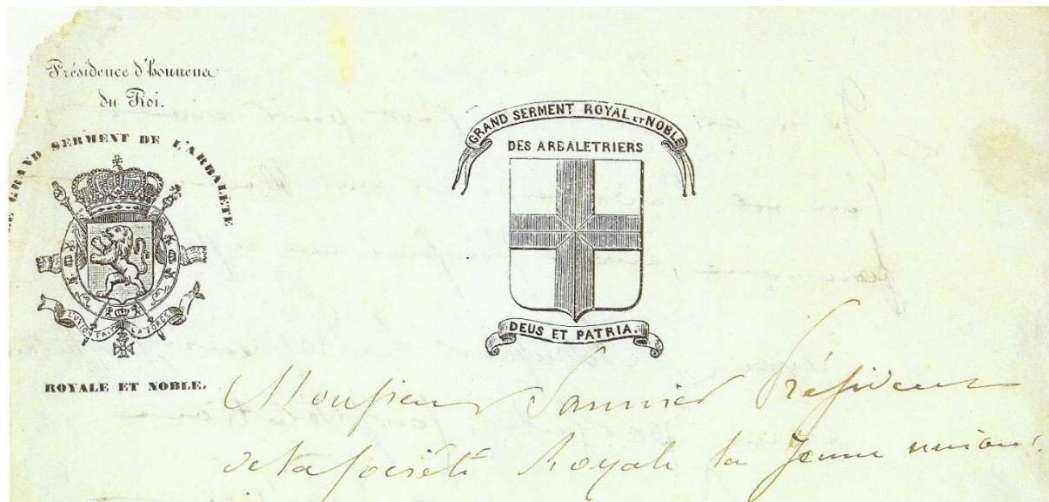 Présidence d'honneur
du Roi.
GRAND SERMENT DE L'ARBALÈTE
L'UNION FAIT LA FORCE
ROYALE ET NOBLE.
GRAND SERMENT ROYAL ET NOBLE
DES ARBALETRIERS
DEUS ET PATRIA.
Monsieur Président
de la société Royale la jeune union.